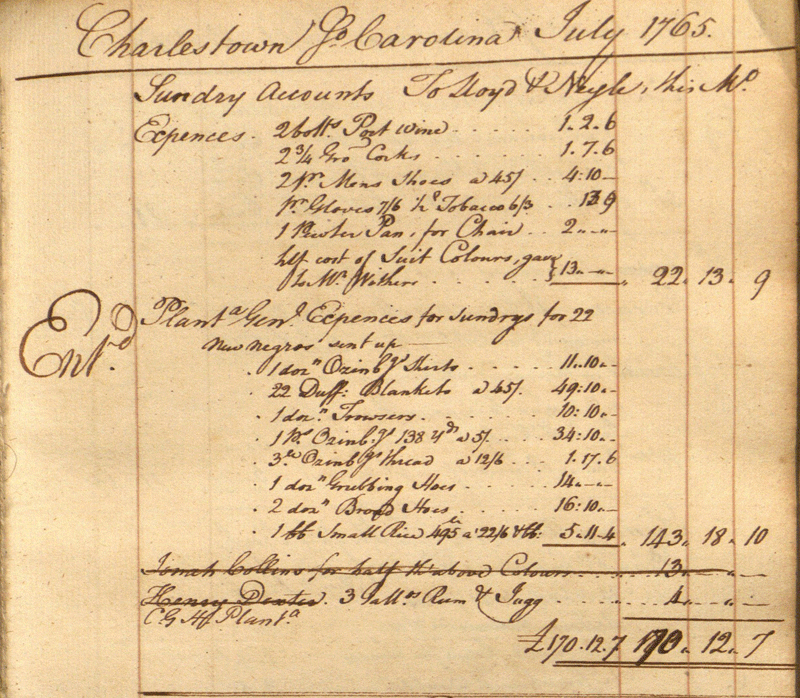 Charlestown So Carolina July 1765.
Sundry Accounts To Lloyd & Neyle, this Mo.
Expences. 2 botts. Port wine . . . . . 1. 2. 6
2 3/4 Gro Corks . . . . . 1. 7. 6
2 pr. Mens Shoes a 45/ . . 4: 10 —
pr. Gloves 7/6 Tobacco 6/3 . . 13 9
1 Pewter Pan, for Chair . . 2 „ — „ —
hlf cost of Suit Colours, gave
to Mr. Withers . . . . . . 13 „ — „ — „ 22 „ 13 „ 9
Planta. Genl. Expences for sundrys for 22
Entd.
New negros sent up —
. 1 dozn Ozinbgs Shirts . . . . . 11. 10 „ -
. 22 Duff: Blankets a 45/. . . 49: 10 „ -
. 1 dozn. Trowsers . . . . . 10: 10 „ -
. 1 Ps. Ozinbgs 138 yds a 5/. . . . 34: 10 „ -
. 3 Ozinbgs thread a 12/6 . . . 1. 17. 6
. 1 dozn Grubbing Hoes . . . . 14 „ — „ -
. 2 dozn Broad Hoes . . . . . 16: 10 „ -
. 1 bb Small Rice 495 a 22/6 & bb: 5 „ 11 „ 4 „ 143 „ 18 „ 10
Jonah Collins for half the above Colours . . . . . . 13 „ — „ —
Henry Dexter. 3 Galls. Rum & Jugg . . . . . 4 „ — „ —
Planta
£170. 12. 7 170 „ 12 „ 7